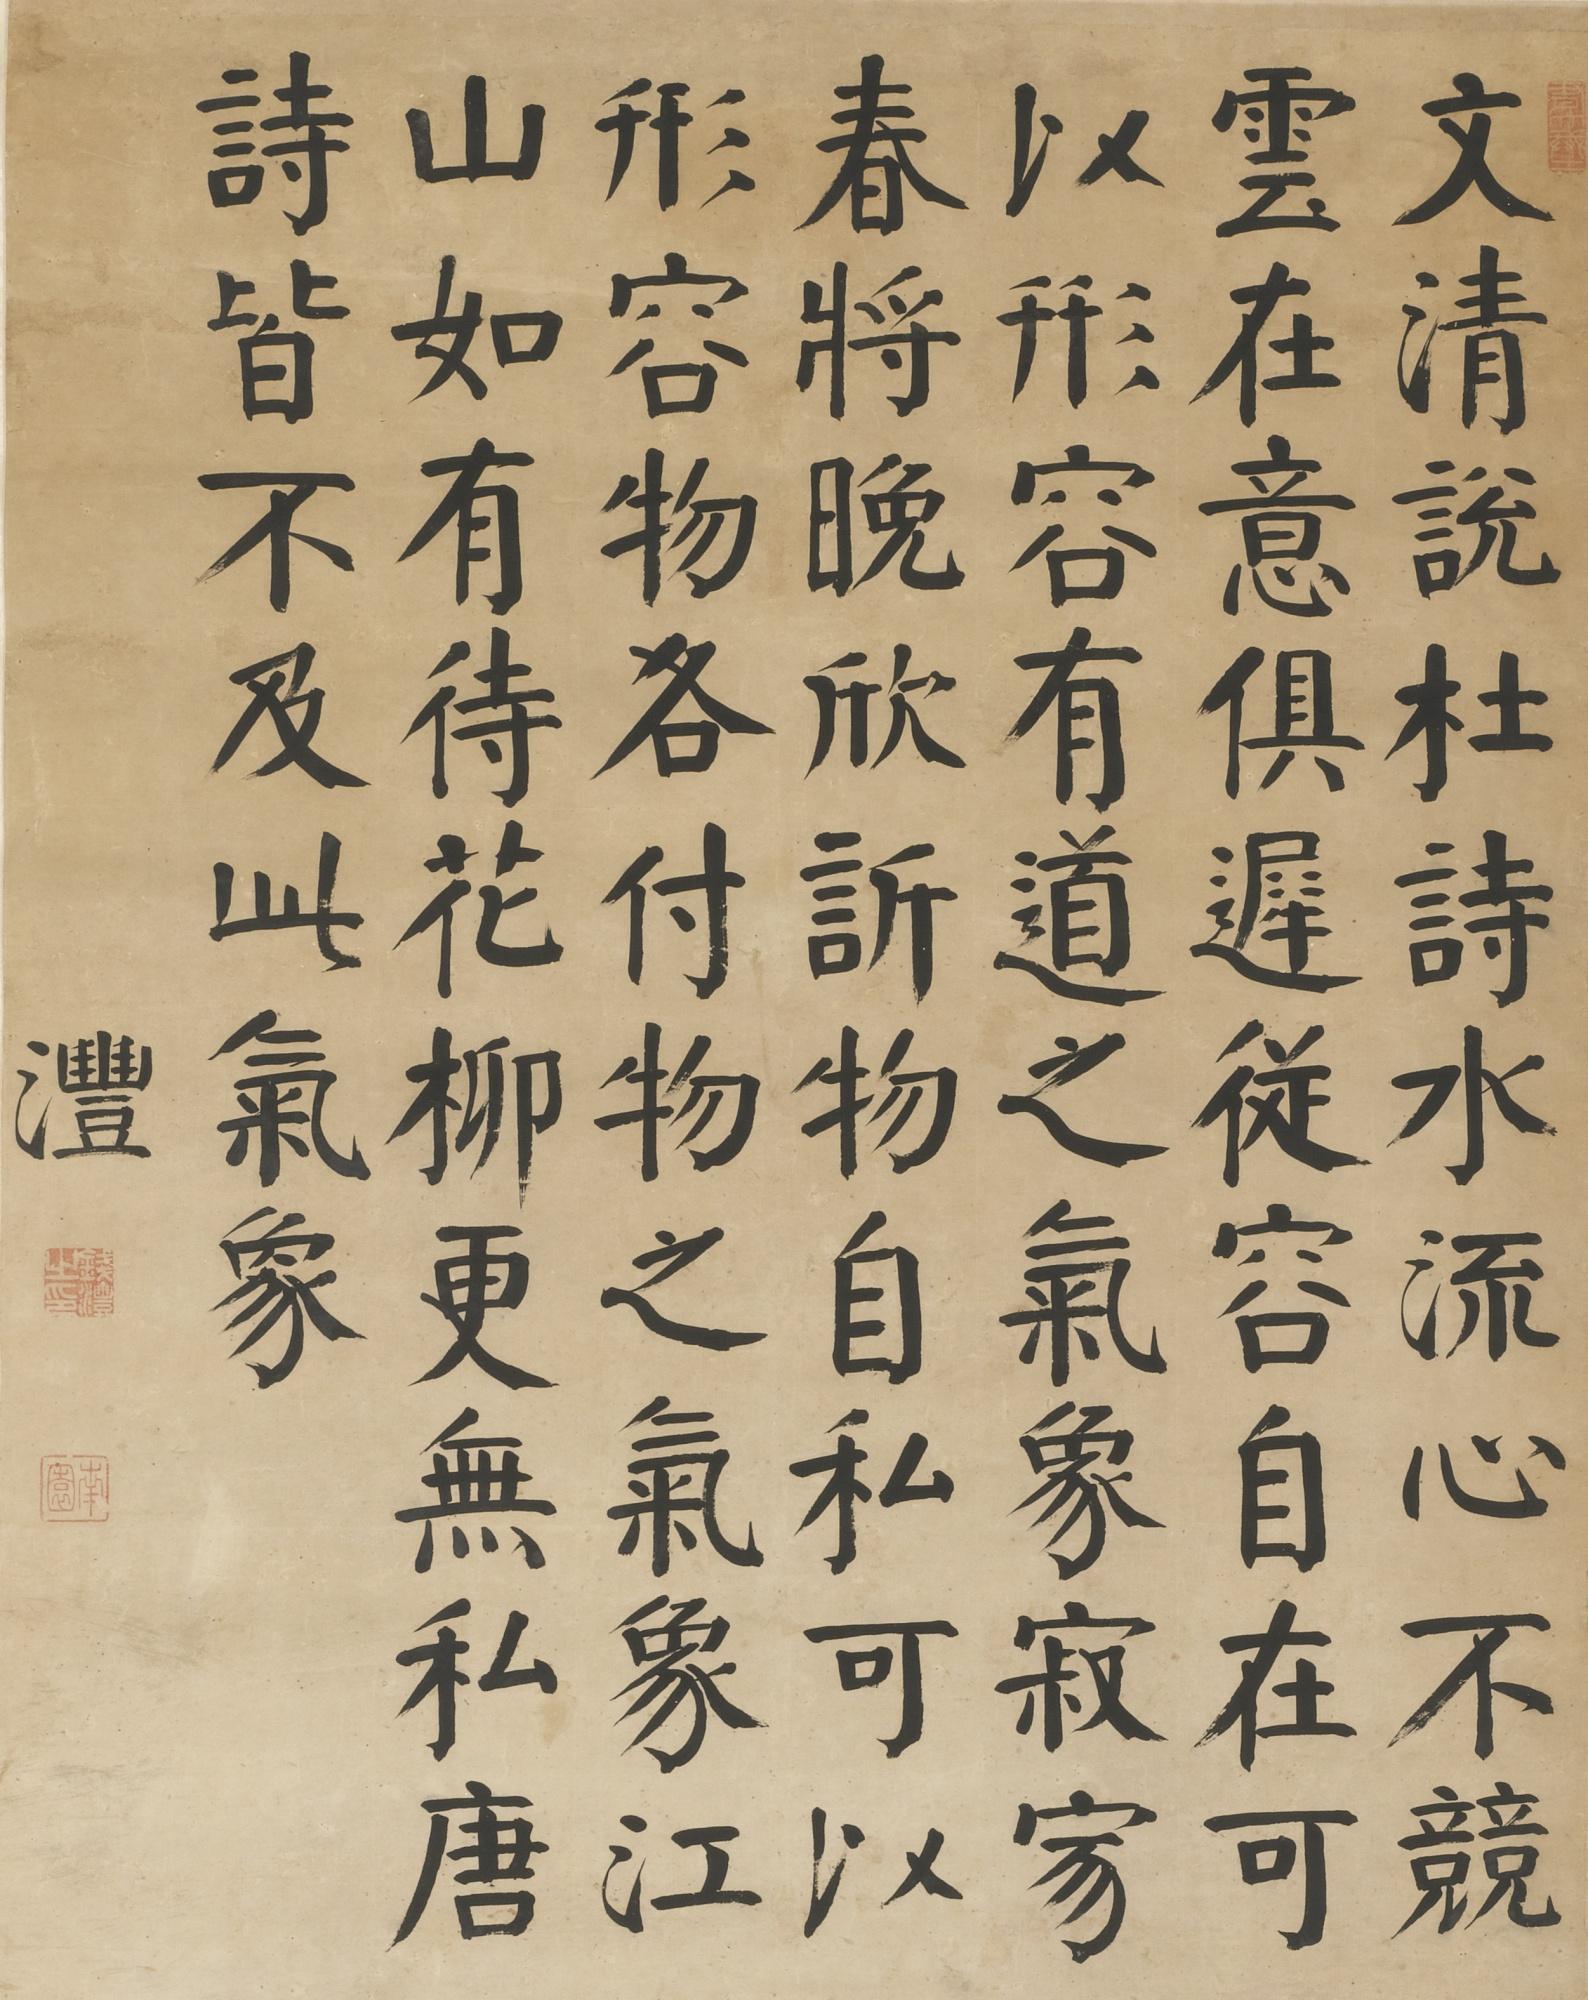 文清說杜詩水流心不競
雲在意俱遲從容自在可
以形容有道之氣象寂寂
春將晚欣訢物自私可以
形容物各付物之氣象江
山如有待花柳更無私唐
詩皆不及此氣象
灃
錢灃之印
南園